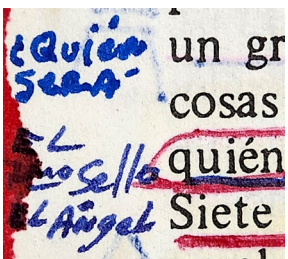 ¿Quién
SERÁ
EL
Sello
EL Ángel
un gr
cosas
quién
Siete